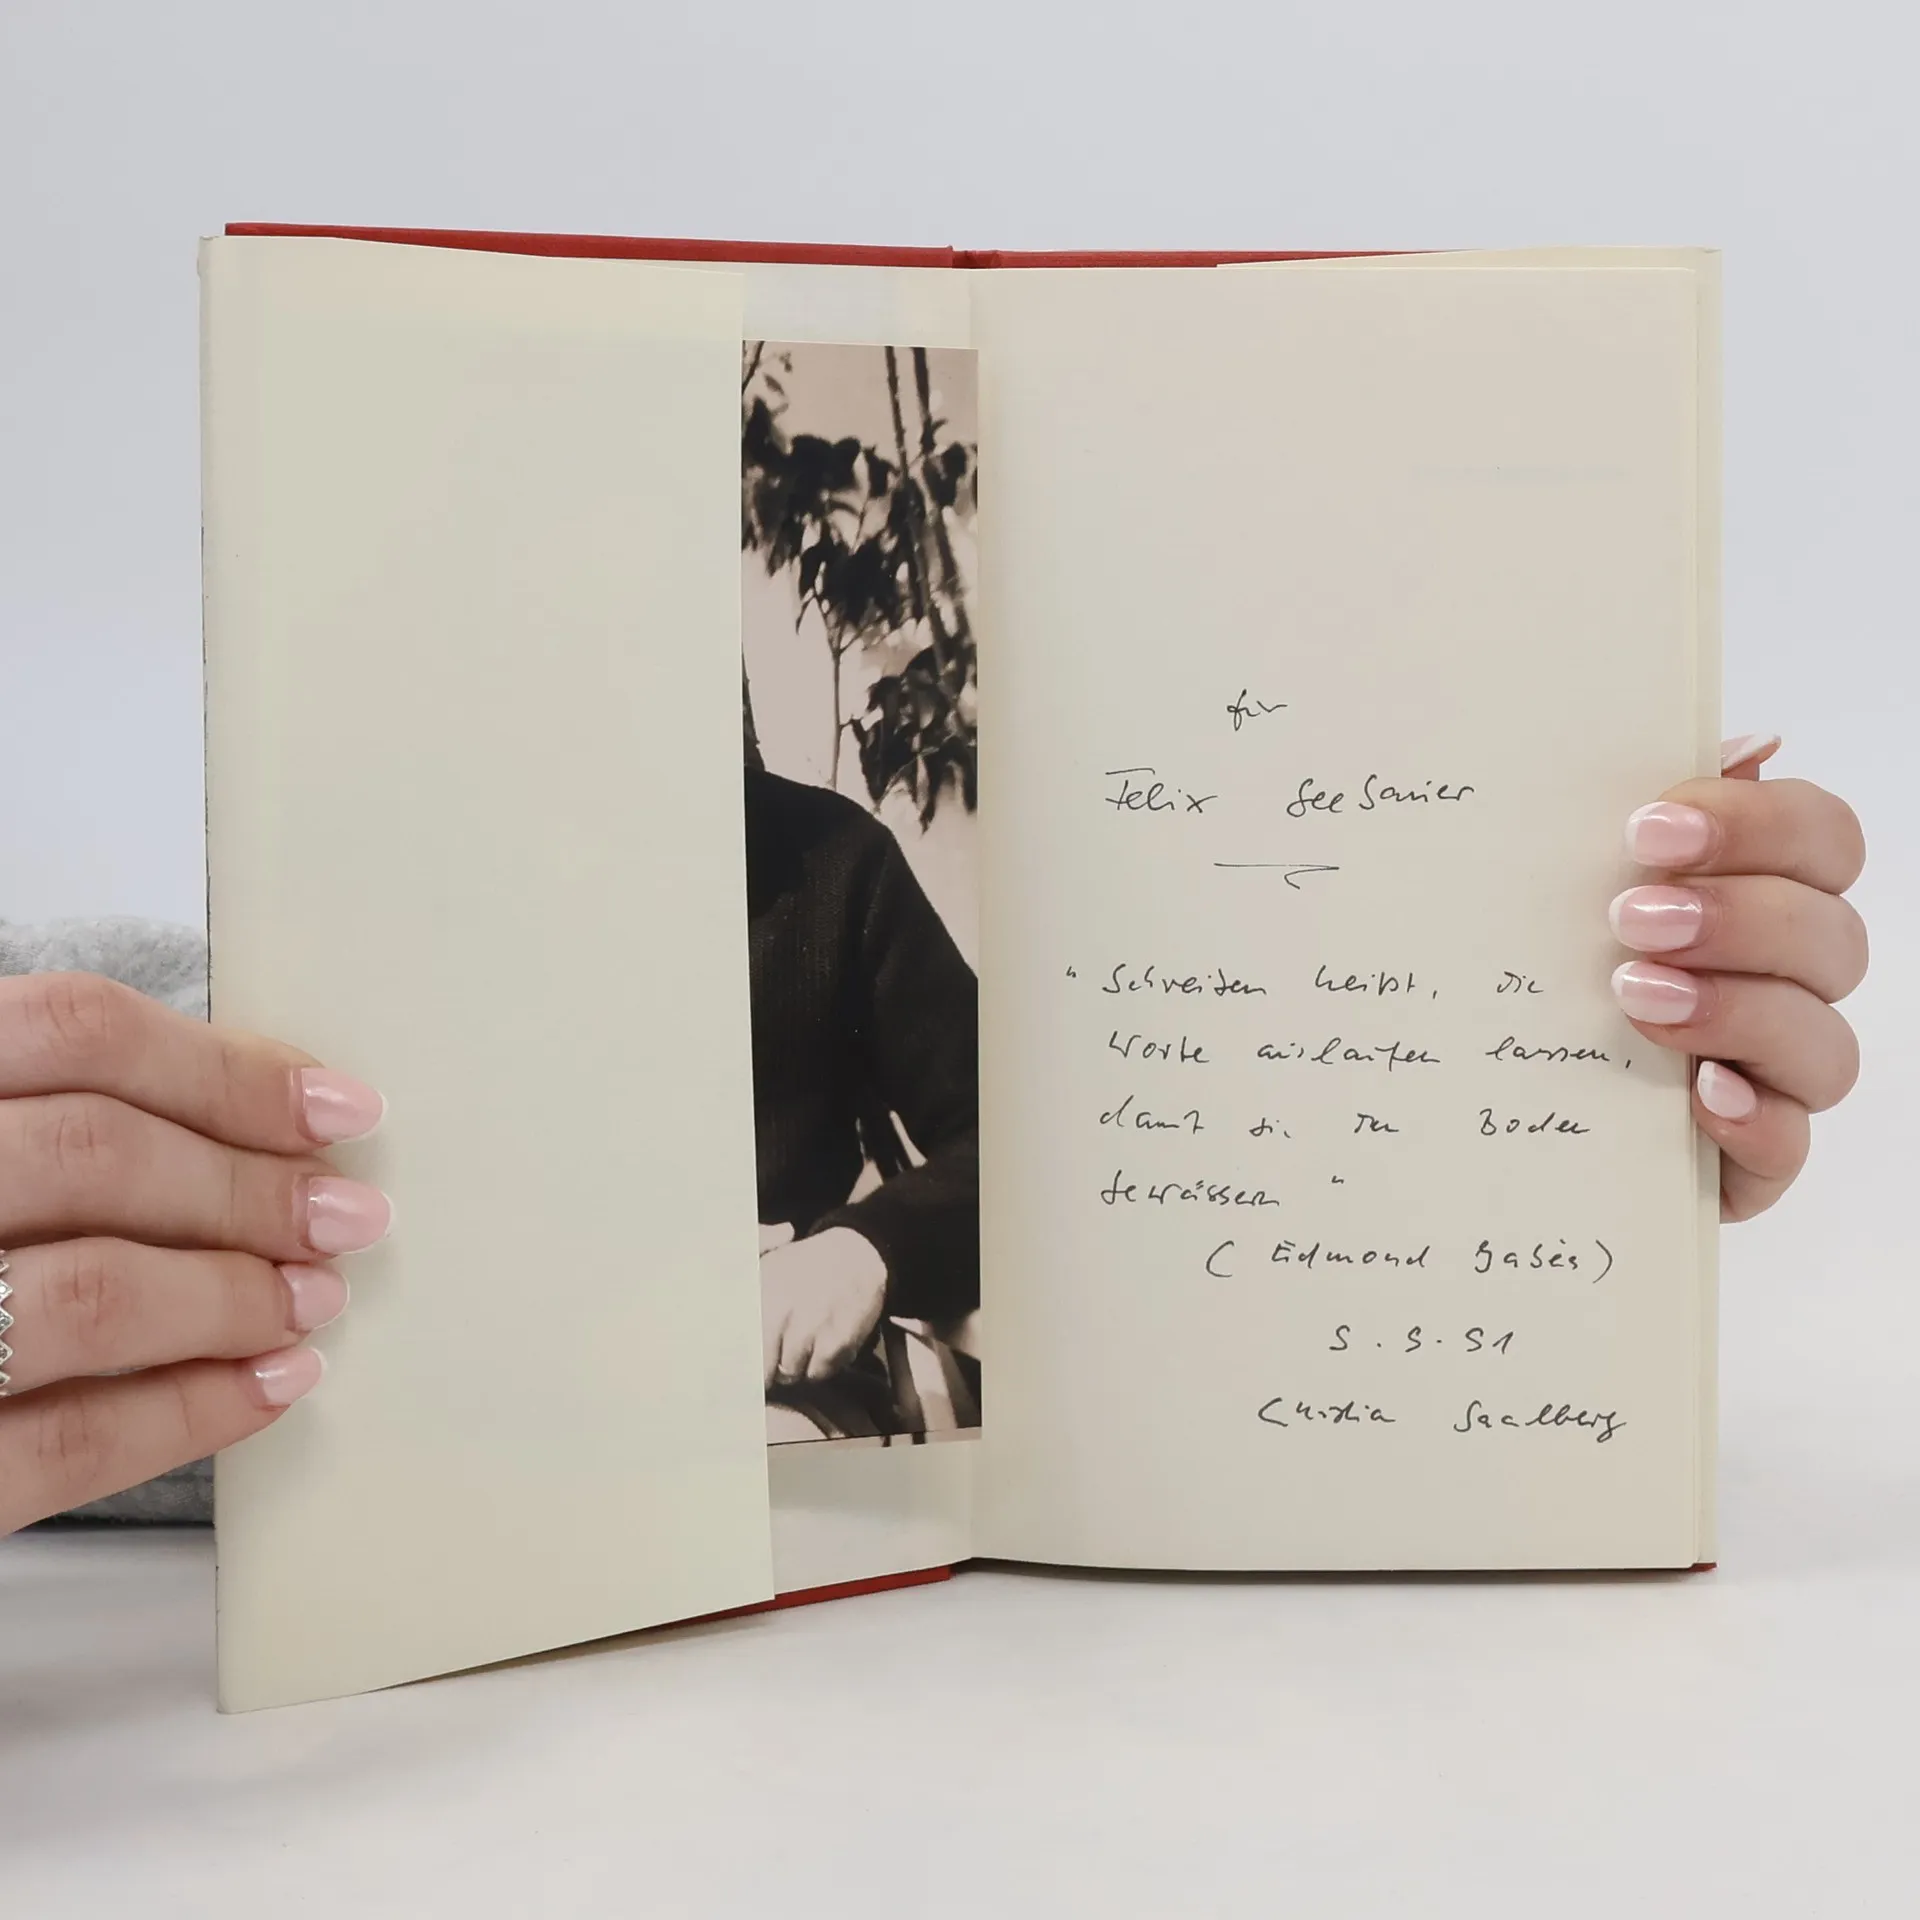 für
Felix Seebauer
"Schreiben heißt, die
Worte auslaufen lassen,
damit sie den Boden
bewässern"
(Edmond Jabès)
9.9.91
Christian Saalberg